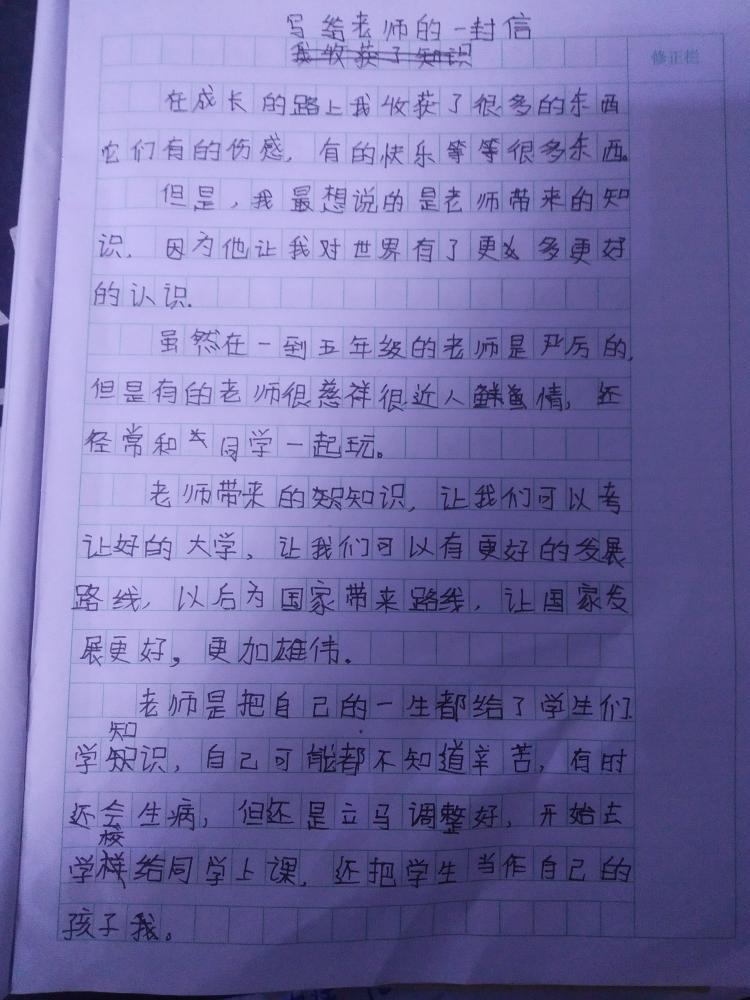 写给老师的一封信
我收获了知识
修正栏
在成长的路上我收获了很多的东西
它们有的伤感，有的快乐等等很多东西。
但是，我最想说的是老师带来的知
识，因为他让我对世界有了更多更好
的认识.
虽然在一到五年级的老师是严厉的,
但是有的老师很慈祥很近人情，还
经常和同学一起玩。
老师带来的知识，让我们可以考
让好的大学，让我们可以有更好的发展
路线，以后为国家带来路线，让国家发
展更好，更加雄伟.
老师是把自己的一生都给了学生们.
知
学识，自己可能都不知道辛苦，有时
还会生病，但还是立马调整好，开始去
校
学给同学上课，还把学生当作自己的
孩子我。